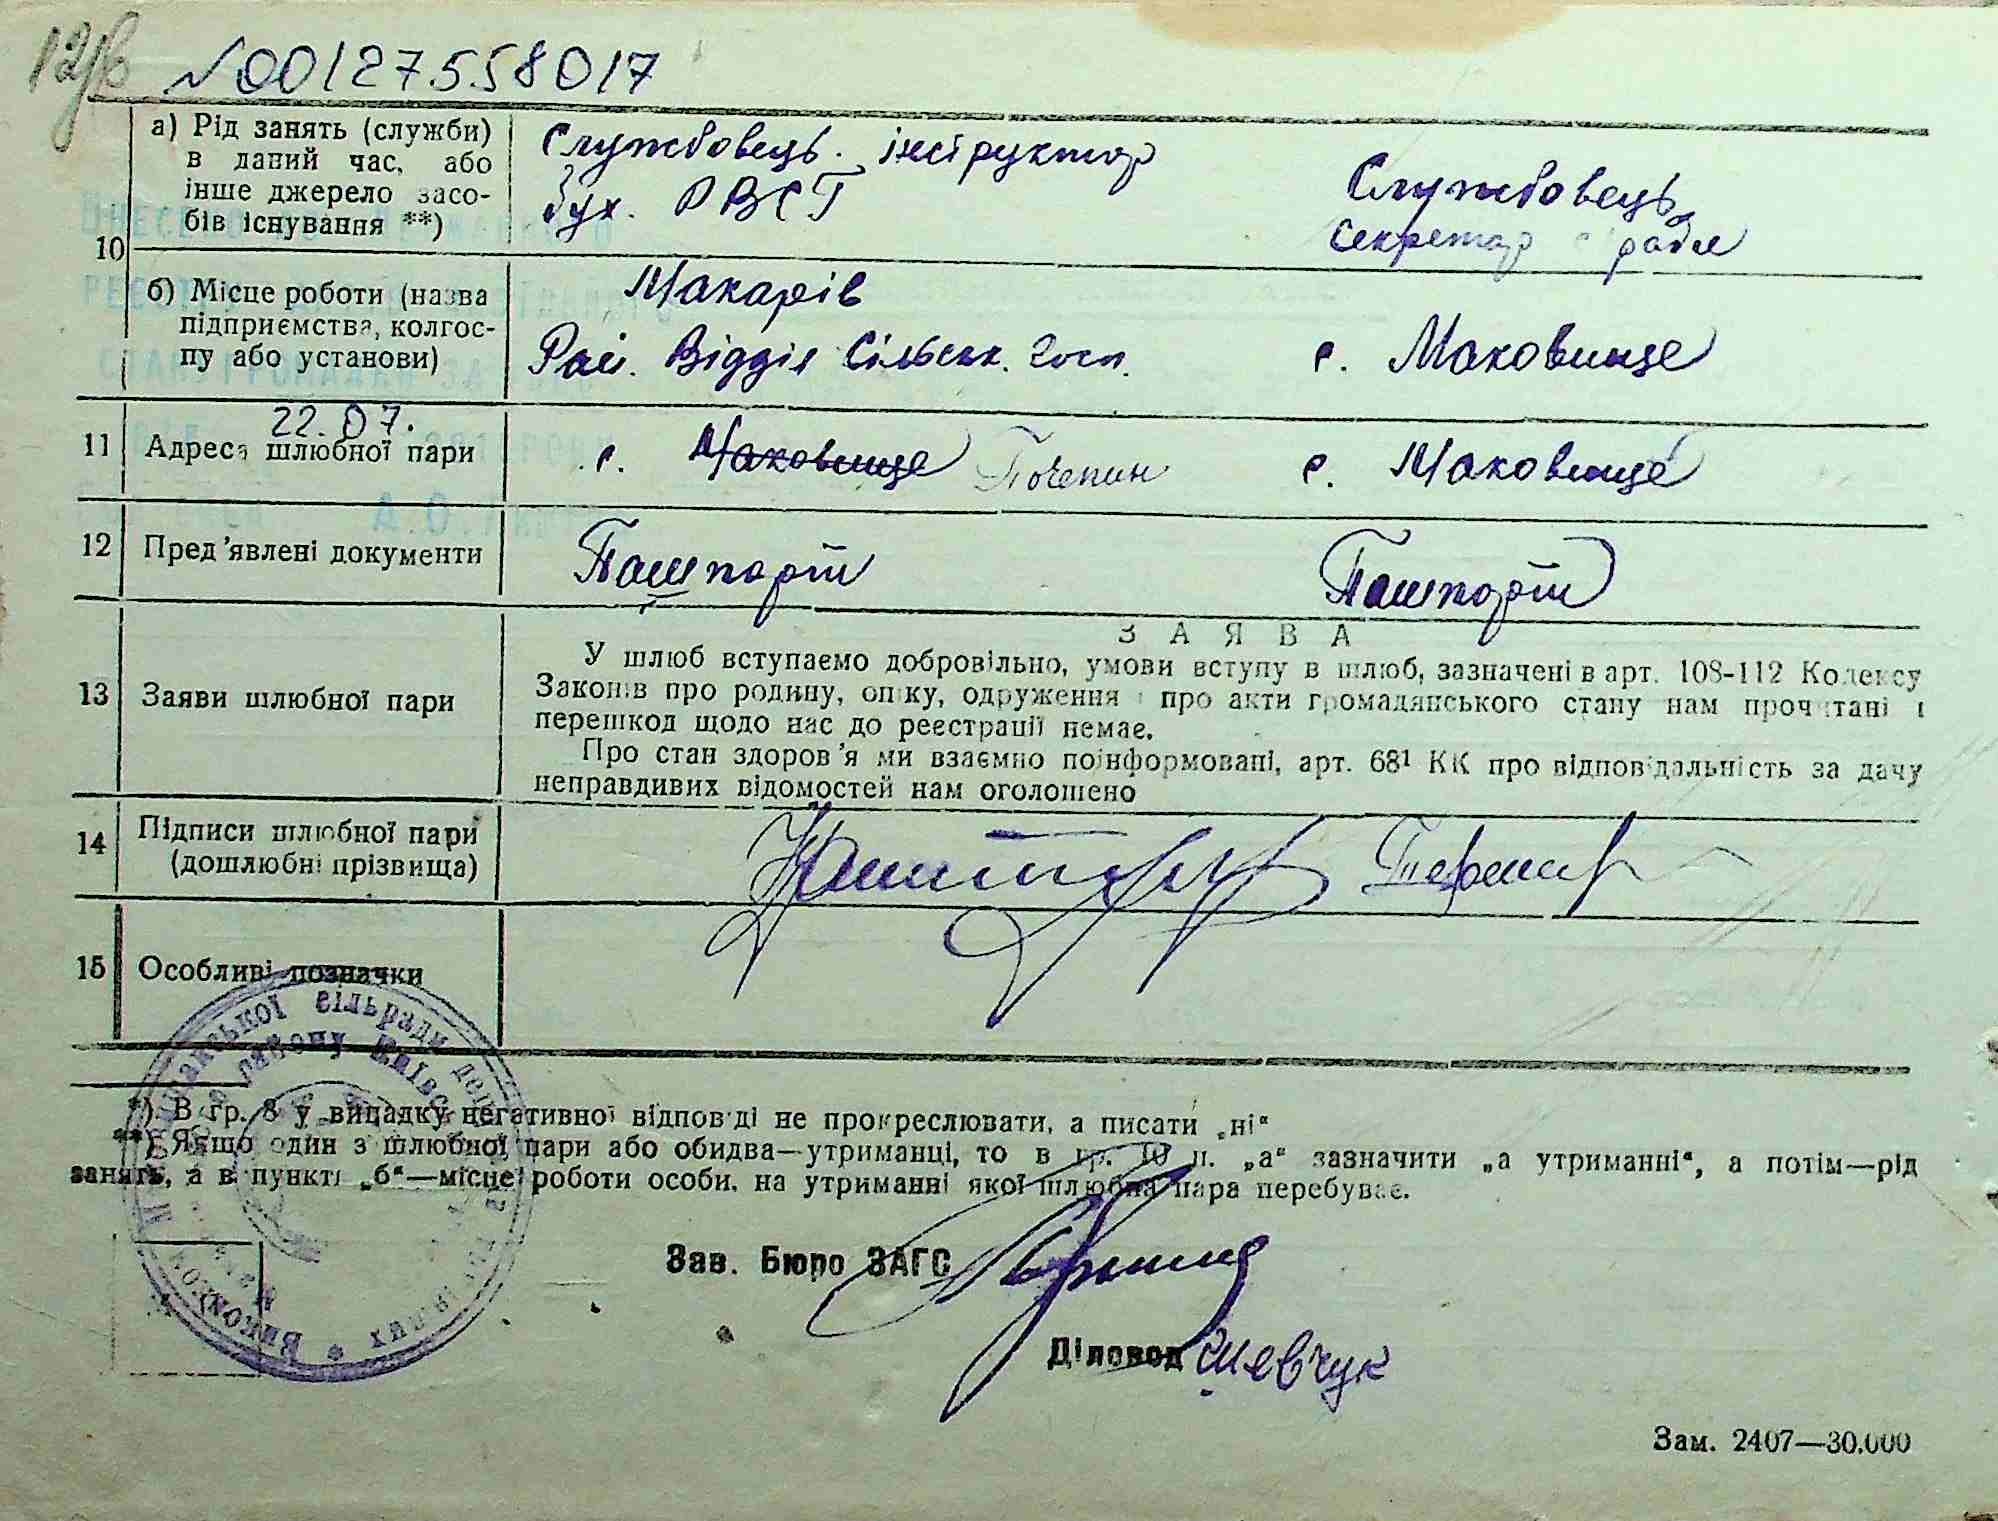 12/6
№00127558017
10
а) Рід занять (служби)
в даний час, або
інше джерело засо-
бів існування **)
Службовець. інструктор
бух. РВСГ
Службовець
секретар с ради
б) Місце роботи (назва
підприємства, колгос-
пу або установи)
Макарів
Рай. Відділ Сільськ. госп.
с. Маковище
22.07.
11 Адреса шлюбної пари
с. Маковище Почепин
с. Маковище
12 Пред'явлені документи
Пашпорт
Пашпорт
13 Заяви шлюбної пари
ЗАЯВА
У шлюб вступаємо добровільно, умови вступу в шлюб, зазначені в арт. 108-112 Кодексу
Законів про родину, опіку, одруження і про акти громадянського стану нам прочитані і
перешкод щодо нас до реєстрації немає.
Про стан здоров'я ми взаємно поінформовані, арт. 68¹ КК про відповідальність за дачу
неправдивих відомостей нам оголошено
14 Підписи шлюбної пари
(дошлюбні прізвища)
15 Особливі позначки
*) В гр. 8 у випадку негативної відповіді не прокреслювати, а писати „ні“
**) Якщо один з шлюбної пари або обидва—утриманці, то в гр. 10 п. „а“ зазначити „а утриманні“, а потім—рід
занять, а в пункті „б“—місце роботи особи, на утриманні якої шлюбна пара перебуває.
Зав. Бюро ЗАГС
Діловод Шевчук
Зам. 2407—30.000